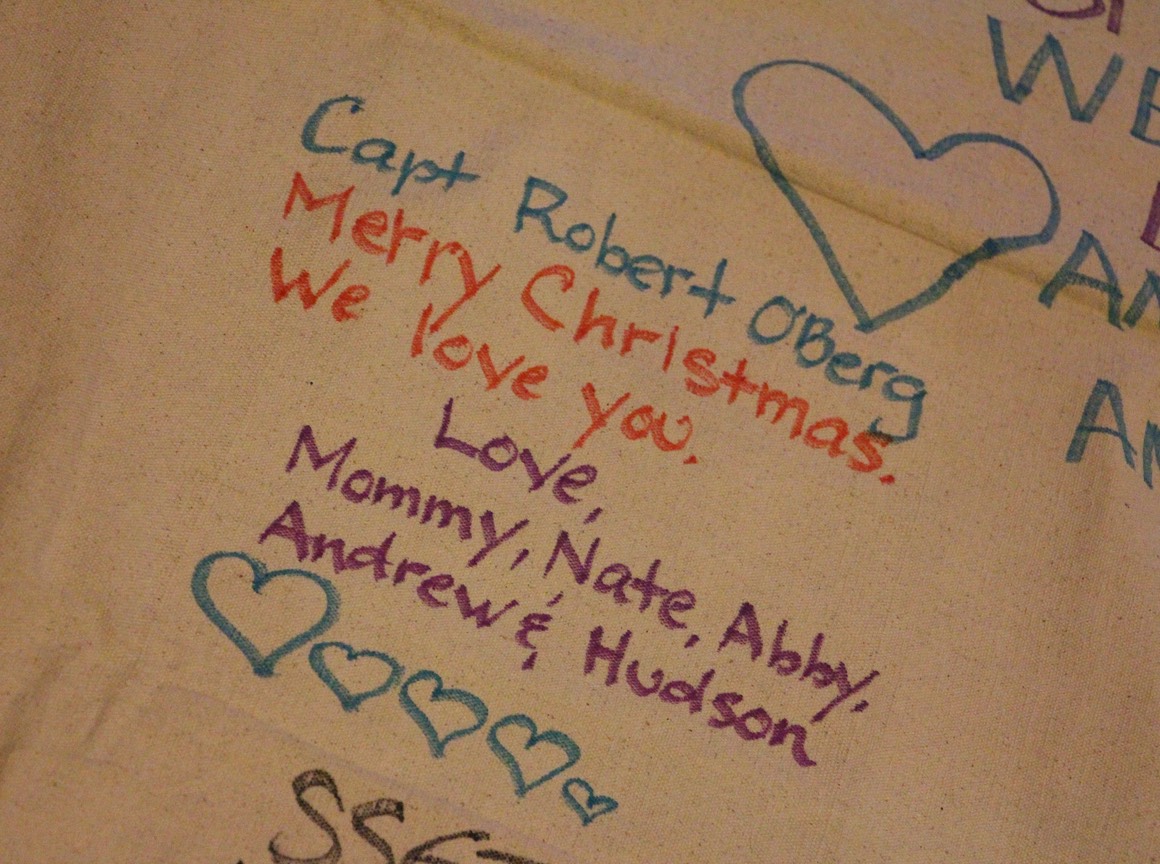 Capt Robert O'Berg
Merry Christmas.
We love you.
Love,
Mommy, Nate, Abby,
Andrew & Hudson